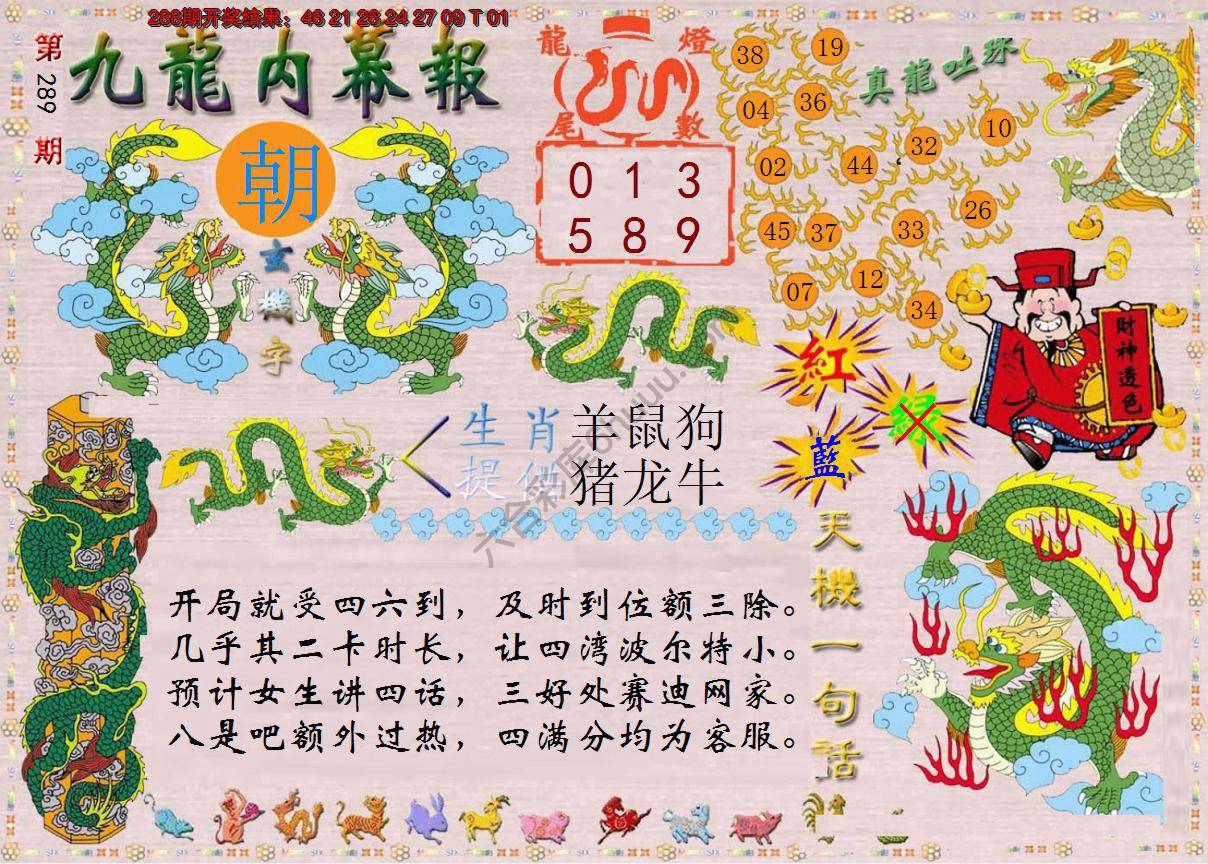 288期开奖结果：46 21 26 24 27 09 T 01
第289期
九龍内幕報
朝
玄機字
龍燈
尾數
0 1 3
5 8 9
真龍吐珠
38
19
04
36
32
10
02
44
26
45
37
33
12
07
34
財神透色
紅
绿
藍
生肖 羊鼠狗
提供 猪龙牛
天機一句話
开局就受四六到，及时到位额三除。
几乎其二卡时长，让四湾波尔特小。
预计女生讲四话，三好处赛迪网家。
八是吧额外过热，四满分均为客服。